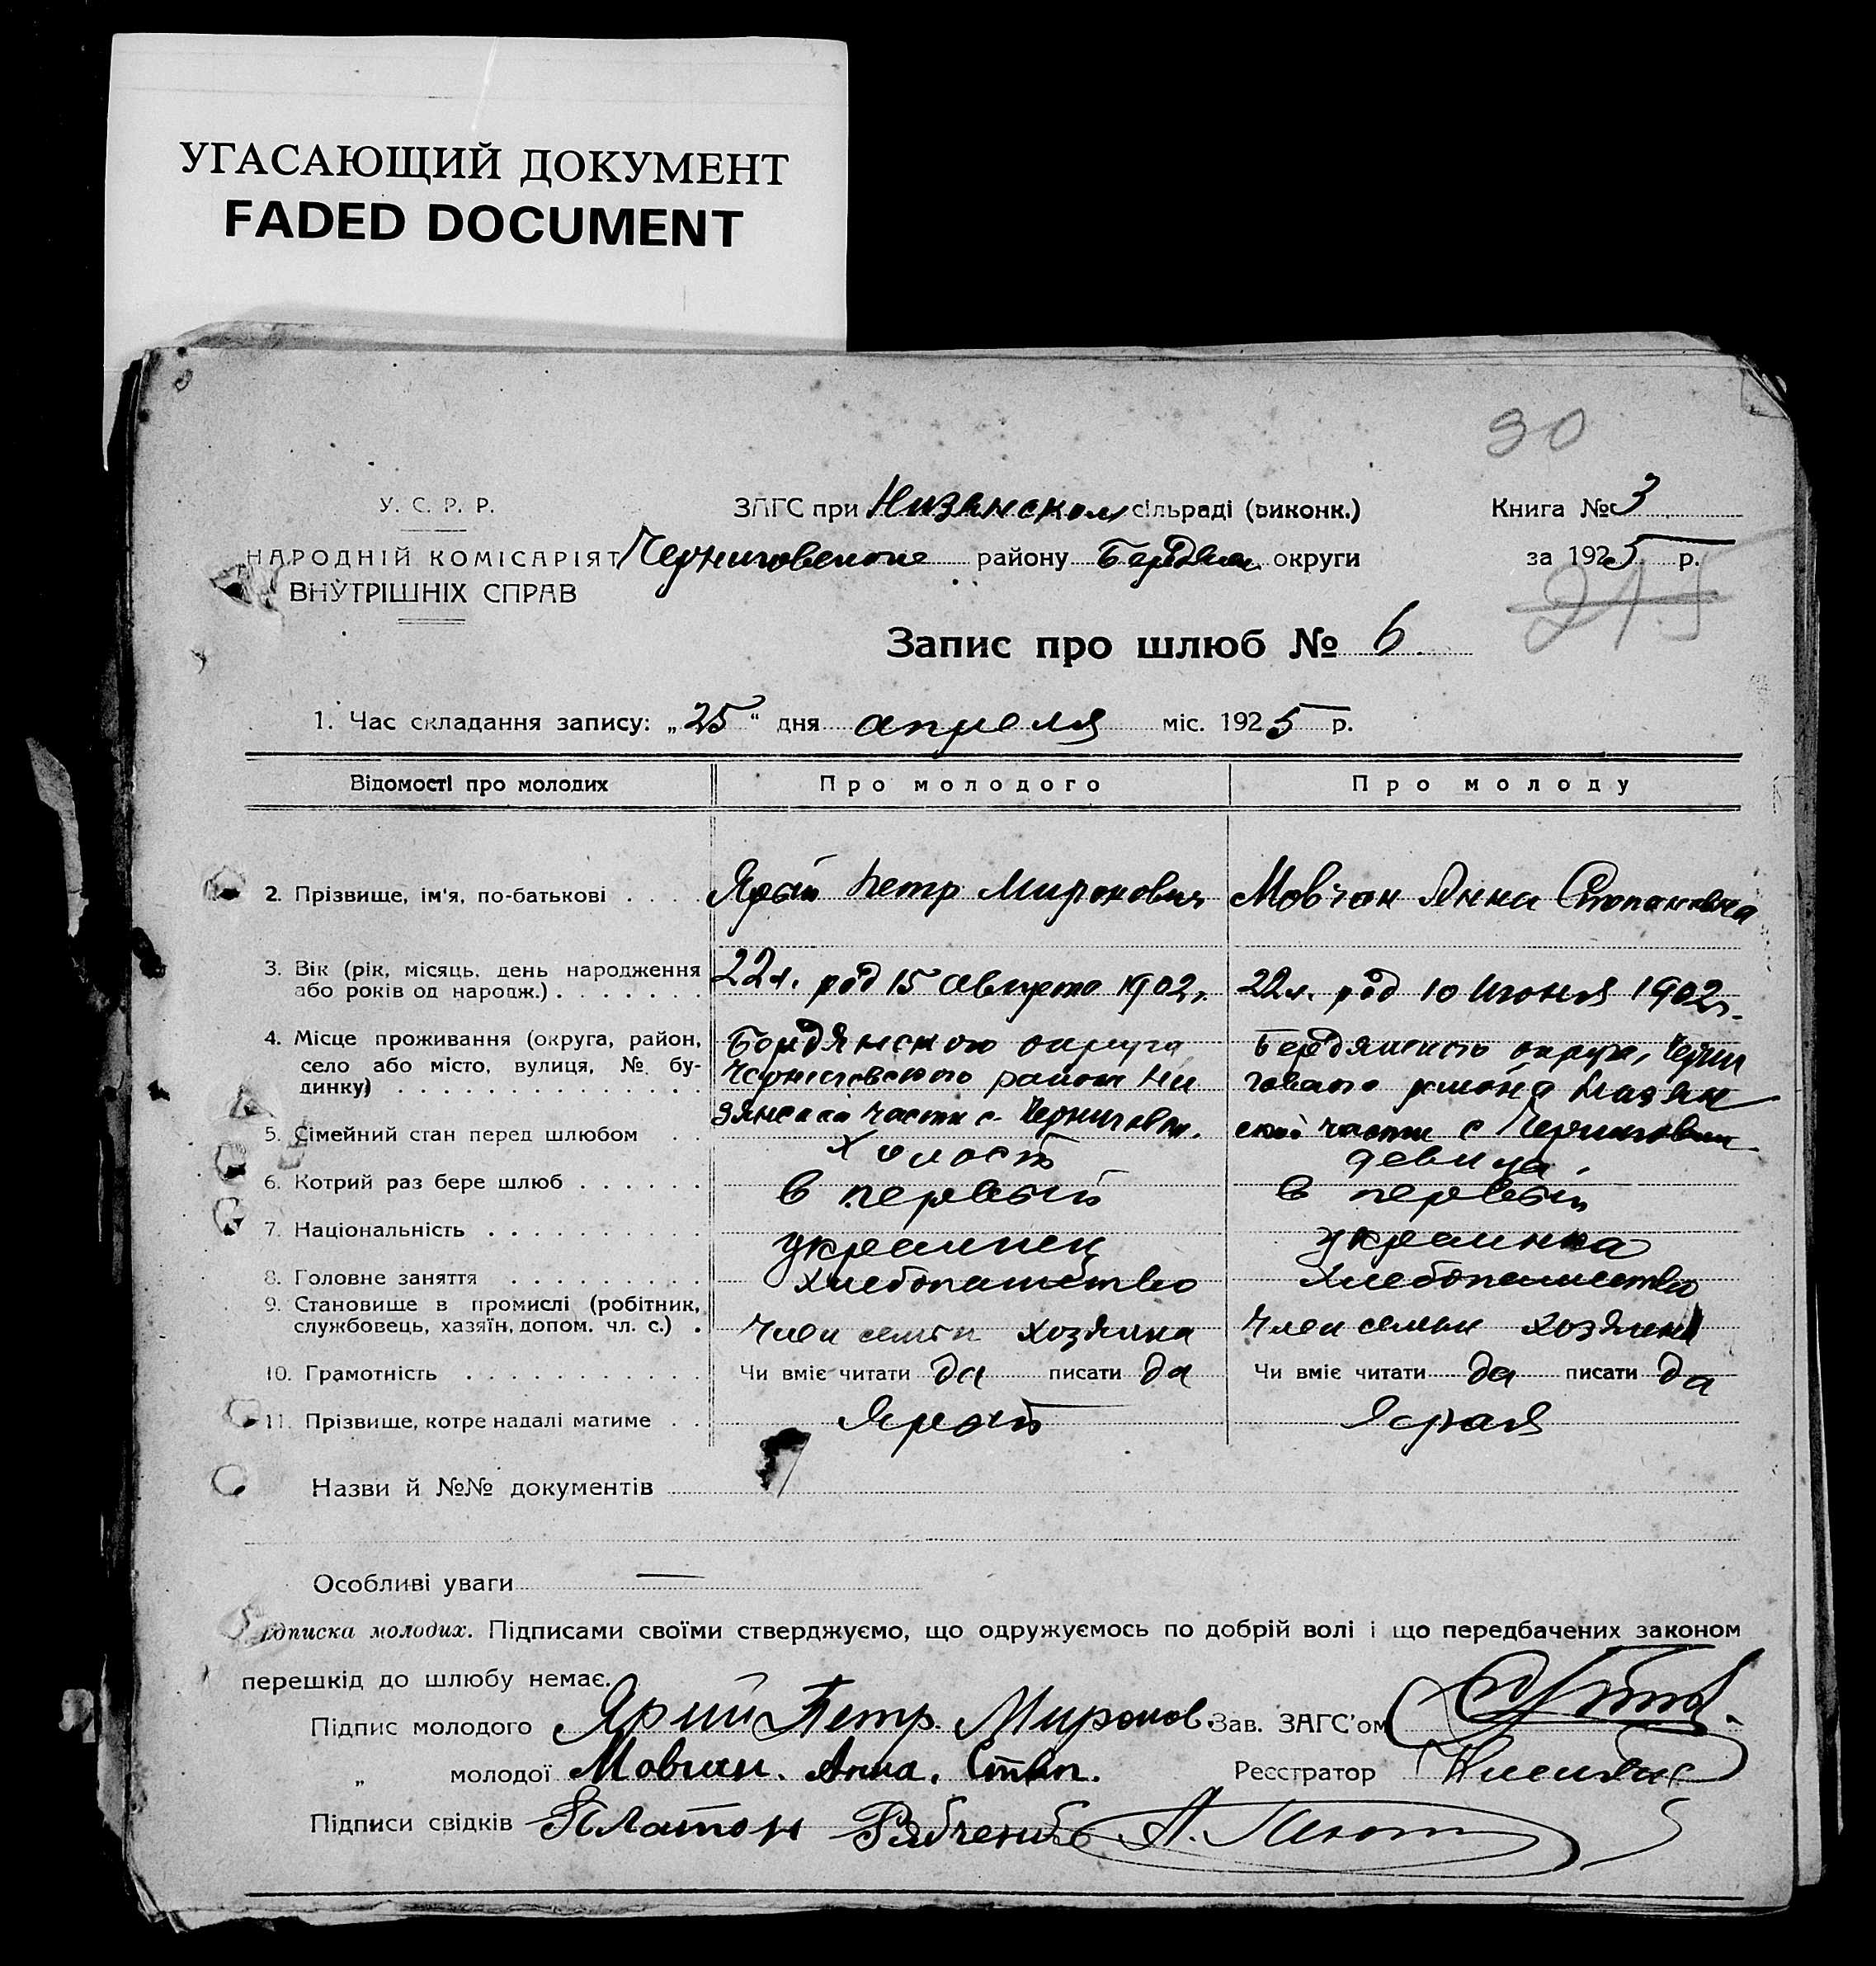 УГАСАЮЩИЙ ДОКУМЕНТ
FADED DOCUMENT
30
У. С. Р. Р.
НАРОДНІЙ КОМІСАРІЯТ
ВНУТРІШНІХ СПРАВ
ЗАГС при Низянском сільраді (виконк.)
Черниговского району Бердян. округи
Книга № 3
за 1925 р.
215
Запис про шлюб № 6
1. Час складання запису: „25“ дня апреля міс. 1925 р.
Відомості про молодих Про молодого Про молоду
2. Прізвище, ім'я, по-батькові . . . . Ярый Петр Миронович Мовчан Анна Степановна
3. Вік (рік, місяць, день народження
або років од народж.) . . . . . . . 22л. род 15 августа 1902г. 22л. род 10 июня 1902г.
4. Місце проживання (округа, район,
село або місто, вулиця, № бу-
динку) . . . . . . . . . . . . . .
Бердянского округа
Черниговского района Ни
зянской части с. Черниговки.
Бердянского округа, Черни
говского района Низян
ской части с Черниговки
5. Сімейний стан перед шлюбом . . холост девица
6. Котрий раз бере шлюб . . . . . . в первый в первый
7. Національність . . . . . . . . . . украинец украинка
8. Головне заняття . . . . . . . . . хлебопашество хлебопашество
9. Становище в промислі (робітник,
службовець, хазяїн, допом. чл. с.) . член семьи хозяина член семьи хозяина
10. Грамотність . . . . . . . . . . . Чи вміє читати да писати да Чи вміє читати да писати да
11. Прізвище, котре надалі матиме . . Ярый Ярая
Назви й №№ документів
Особливі уваги —
Підписка молодих. Підписами своїми стверджуємо, що одружуємось по добрій волі і що передбачених законом
перешкід до шлюбу немає.
Підпис молодого Ярий Петр. Миронов. Зав. ЗАГС'ом
„ молодої Мовчан. Анна. Степ. Реєстратор
Підписи свідків Платон Рябченко А.